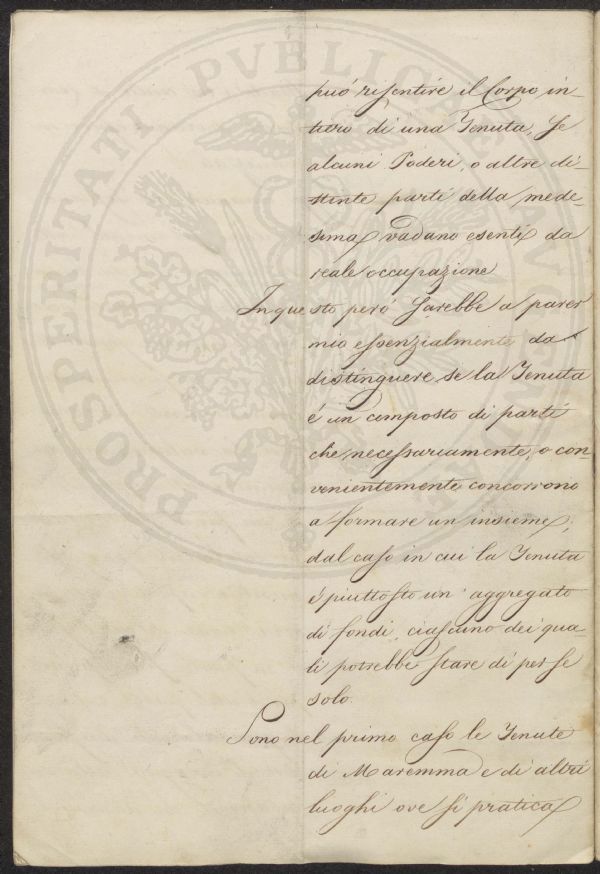 può risentire il Corpo in-
tiero di una Tenuta, se
alcuni Poderi, o altre di-
stinte parti della mede-
sima vadano esenti da
reale occupazione
In questo però sarebbe a parer
mio essenzialmente da
distinguere se la Tenuta
è un composto di parti
che necessariamente, o con-
venientemente concorrono
a formare un insieme;
dal caso in cui la Tenuta
è piuttosto un' aggregato
di fondi, ciascuno dei qua-
li potrebbe stare di per se
solo.
Sono nel primo caso le Tenute
di Maremma e di altri
luoghi ove si pratica
PROSPERITATI PVBLICAE AVG